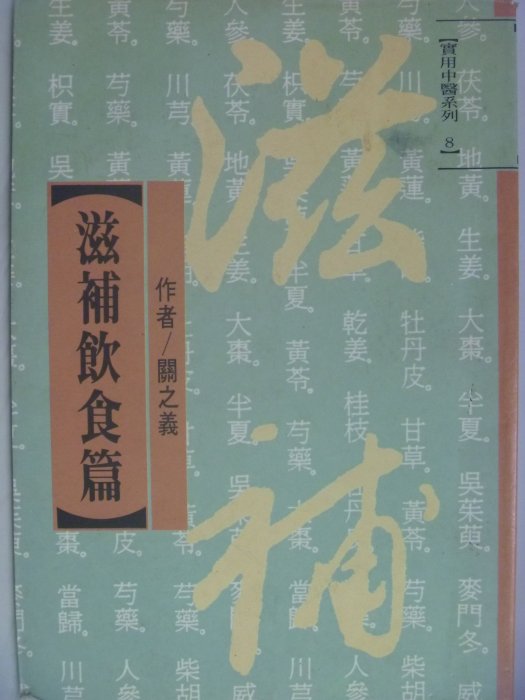 【實用中醫系列 8】
滋補
作者/關之義
【滋補飲食篇】
茯苓。地黃。生姜。大棗。半夏。吳茱萸。麥門冬。
黃蓮。牡丹皮。甘草。黃苓。芍藥。柴胡
乾姜。桂枝。牡丹
半夏。黃苓。芍藥。當歸。川芎
人參。茯苓。地黃。生姜。大棗。半夏。吳
芍藥。川芎。黃蓮。黃苓。芍藥。柴胡
黃苓。芍藥。黃 皮。芍藥。人參
生姜。枳實。吳 棗。當歸。川芎